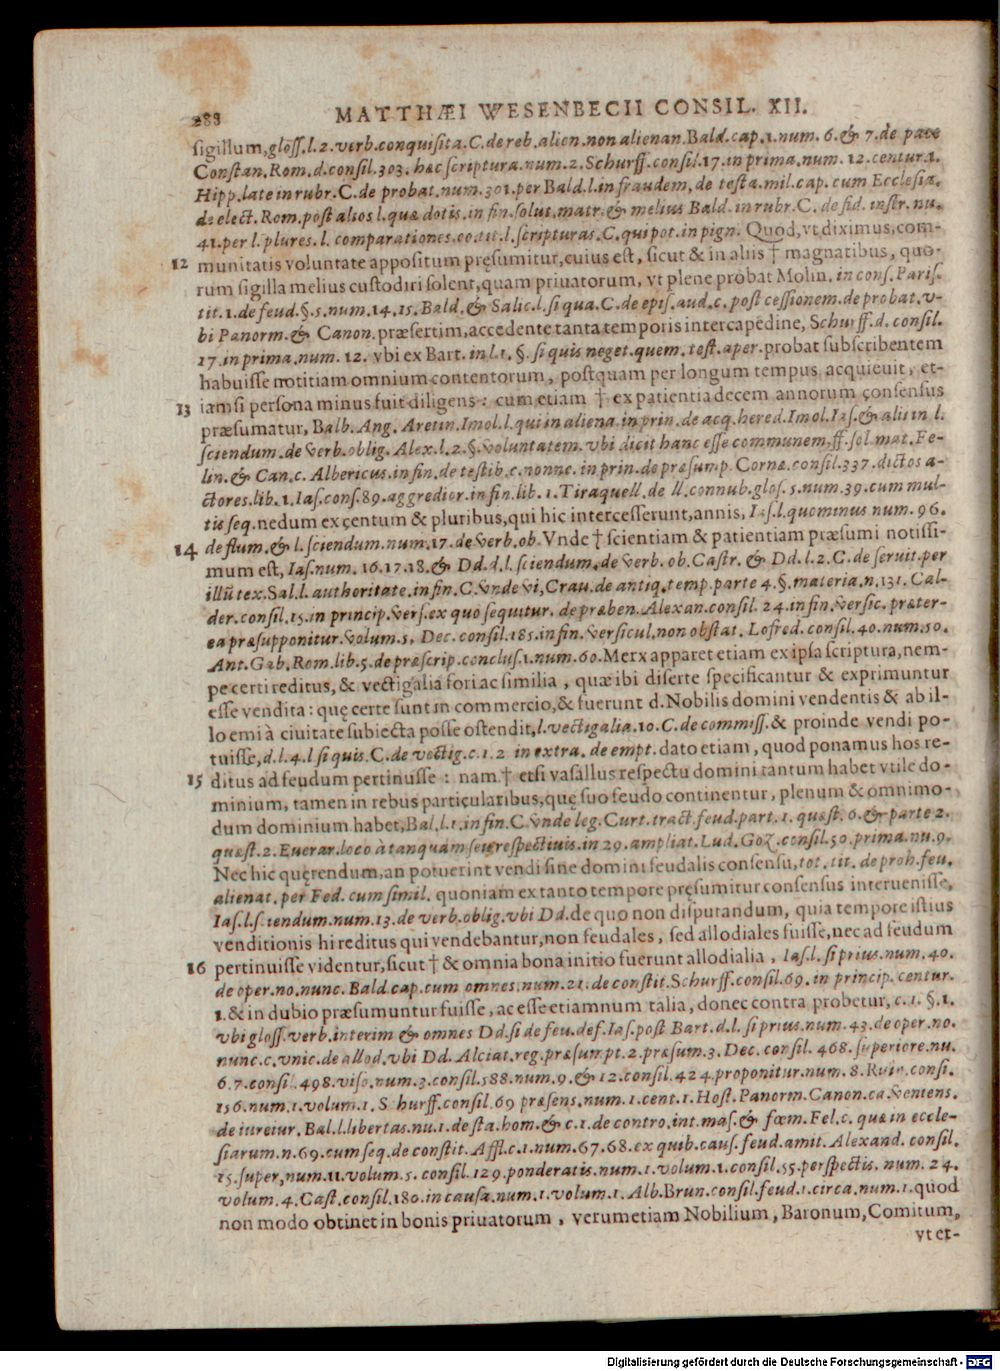 288 MATTHÆI WESENBECII CONSIL. XII.
sigillum, gloss.l.2.verb.conquisita.C.de reb.alien.non alienan.Bald.cap.1.num.6.& 7.de pace
Constan.Rom.d.consil.303.hæc scriptura.num.2.Schurff.consil.17.in prima.num.12.centur.1.
Hipp.late in rubr.C.de probat.num.301.per Bald.l.in fraudem, de testa.mil.cap.cum Ecclesia.
de elect.Rom.post alios l.quæ dotis.in fin.solut.matr.& melius Bald.in rubr.C.de fid.instr.nu.
41.per l.plures.l.comparationes.eo.tit.l.scripturas.C.qui pot.in pign. Quod,vt diximus,com-
12 munitatis voluntate appositum pręsumitur,cuius est, sicut & in aliis † magnatibus, quo-
rum sigilla melius custodiri solent,quam priuatorum, vt plene probat Molin.in cons.Paris.
tit.1.de feud.§.5.num.14.15.Bald.& Salic.l.si qua.C.de epis.aud.c.post cessionem.de probat.v-
bi Panorm.& Canon.præsertim,accedente tanta temporis intercapedine, Schurff.d.consil.
17.in prima.num.12. vbi ex Bart.in l.1.§.si quis neget.quem.test.aper.probat subscribentem
habuisse notitiam omnium contentorum, postquam per longum tempus acquieuit, et-
13 iamsi persona minus fuit diligens: cum etiam † ex patientia decem annorum consensus
præsumatur, Balb.Ang.Aretin.Imol.l.qui in aliena.in prin.de acq.hered.Imol.Ias.& alii in l.
sciendum.de verb.oblig.Alex.l.2.§.voluntatem.vbi dicit hanc esse communem,ff.sol.mat.Fe-
lin.& Can.c.Albericus.in fin.de testib.c.nonne.in prin.de præsump.Corne.consil.337.dictos a-
ctores.lib.1.Ias.cons.89.aggredior.in fin.lib.1.Tiraquell.de ll.connub.glos.5.num.39.cum mul-
tis seq.nedum ex çentum & pluribus,qui hic intercesserunt,annis, Ias.l.quominus num.96.
14 de flum.& l.sciendum.num.17.de verb.ob.Vnde † scientiam & patientiam præsumi notissi-
mum est, Ias.num.16.17.18.& Dd.d.l.sciendum.de verb.ob.Castr.& Dd.l.2.C.de seruit.per
illū tex.Sal.l.authoritate.in fin.C.vnde vi,Crau.de antiq.temp.parte 4.§.materia.n.131.Cal-
der.consil.15.in princip.vers.ex quo sequitur.de præben.Alexan.consil.24.in fin.versic.præter-
ea præsupponitur.volum.5.Dec.consil.185.in fin.versicul.non obstat.Lofred.consil.40.num.50.
Ant.Gab.Rom.lib.5.de præscrip.conclus.1.num.60.Merx apparet etiam ex ipsa scriptura,nem-
pe certi reditus,& vectigalia fori ac similia, quæ ibi diserte specificantur & exprimuntur
esse vendita: quę certe sunt in commercio,& fuerunt d.Nobilis domini vendentis & ab il-
lo emi à ciuitate subiecta posse ostendit,l.vectigalia.10.C.de commiss.& proinde vendi po-
tuisse,d.l.4.l si quis.C.de vectig.c.1.2 in extra.de empt.dato etiam, quod ponamus hos re-
15 ditus ad feudum pertinuisse: nam † etsi vasallus respectu domini tantum habet vtile do-
minium, tamen in rebus particularibus,quę suo feudo continentur, plenum & omnimo-
dum dominium habet,Bal.l.1.in fin.C.vnde leg.Curt.tract.feud.part.1.quæst.6.& parte 2.
quæst.2.Euerar.loco à tanquam seu respectiuis.in 29.ampliat.Lud.Goz.consil.50.prima.nu.9.
Nec hic quęrendum,an potuerint vendi sine domini feudalis consensu,tot.tit.de proh.feu.
alienat.per Fed.cum simil. quoniam ex tanto tempore pręsumitur consensus interuenisse,
Ias.l.sciendum.num.13.de verb.oblig.vbi Dd.de quo non disputandum, quia tempore istius
venditionis hi reditus qui vendebantur,non feudales, sed allodiales fuisse,nec ad feudum
16 pertinuisse videntur,sicut † & omnia bona initio fuerunt allodialia, Ias.l.si prius.num.40.
de oper.no.nunc.Bald.cap.cum omnes.num.21.de constit.Schurff.consil.69.in princip.centur.
1.& in dubio præsumuntur fuisse, ac esse etiamnum talia, donec contra probetur, c.1.§.1.
vbi gloss.verb.interim & omnes Dd.si de feu.def.Ias.post Bart.d.l.si prius.num.43.de oper.no.
nunc.c.vnic.de allod.vbi Dd.Alciat.reg.præsumpt.2.præsum.3.Dec.consil.468.superiore.nu.
6.7.consil.498.viso.num.3.consil.588.num.9.& 12.consil.424.proponitur.num.8.Ruin.consi.
156.num.1.volum.1.Schurff.consil.69 præsens.num.1.cent.1.Host.Panorm.Canon.ca.veniens.
de iureiur.Bal.l.libertas.nu.1.de sta.hom.& c.1.de contro.int.mas.& fœm.Fel.c.quæ in eccle-
siarum.n.69.cum seq.de constit.Affl.c.1.num.67.68.ex quib.caus.feud.amit.Alexand.consil.
15.super,num.11.volum.5.consil.129.ponderatis.num.1.volum.1.consil.55.perspectis.num.24.
volum.4.Cast.consil.180.in causa.num.1.volum.1.Alb.Brun.consil.feud.1.circa.num.1.quod
non modo obtinet in bonis priuatorum, verumetiam Nobilium, Baronum, Comitum,
vt et-
Digitalisierung gefördert durch die Deutsche Forschungsgemeinschaft - DFG